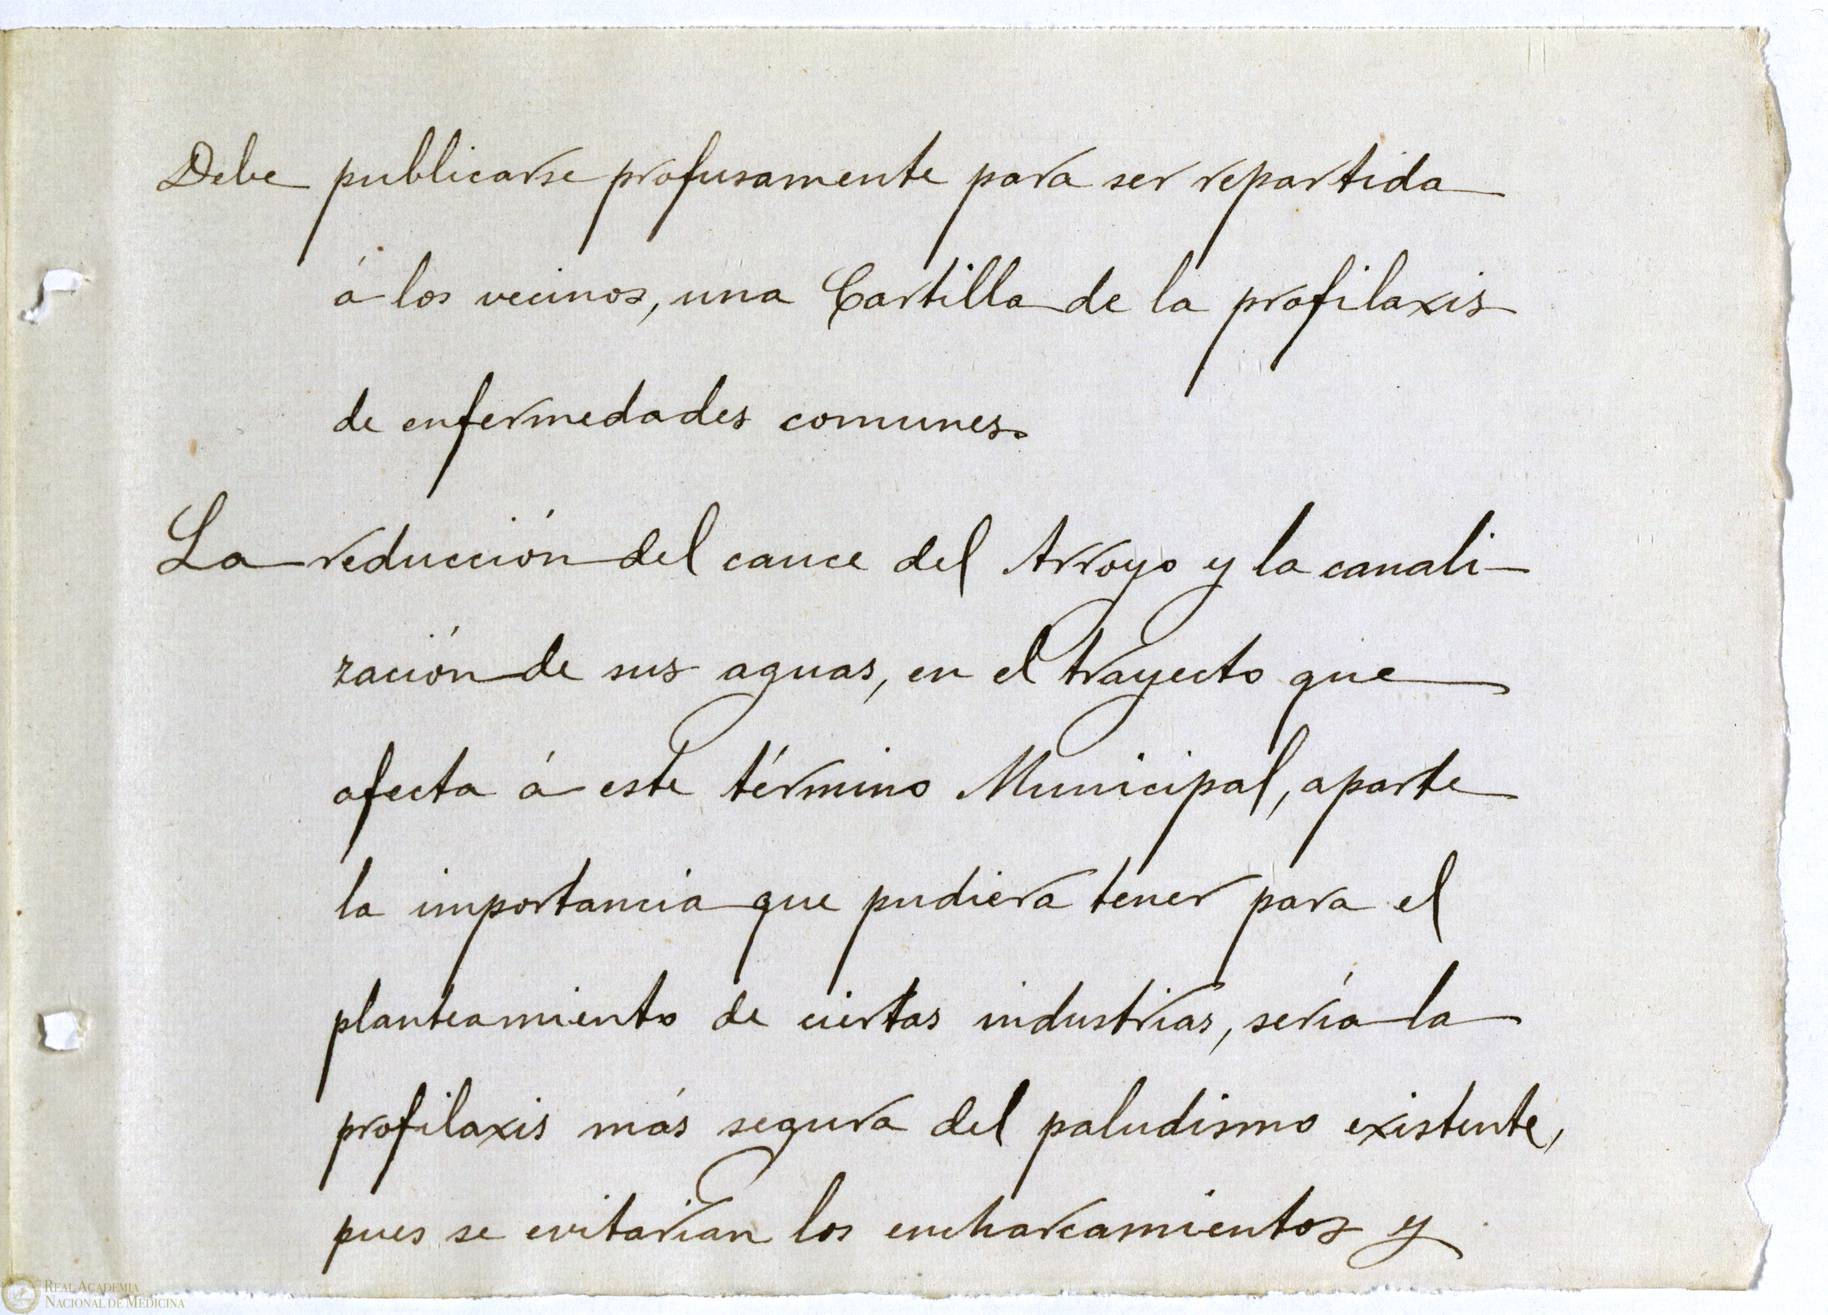 Debe publicarse profusamente para ser repartida
á los vecinos, una Cartilla de la profilaxis
de enfermedades comunes.
La reducción del cauce del Arroyo y la canali-
zación de sus aguas, en el trayecto que
afecta á este término Municipal, aparte
la importancia que pudiera tener para el
planteamiento de ciertas industrias, sería la
profilaxis más segura del paludismo existente,
pues se evitarían los encharcamientos y
REAL ACADEMIA
NACIONAL DE MEDICINA